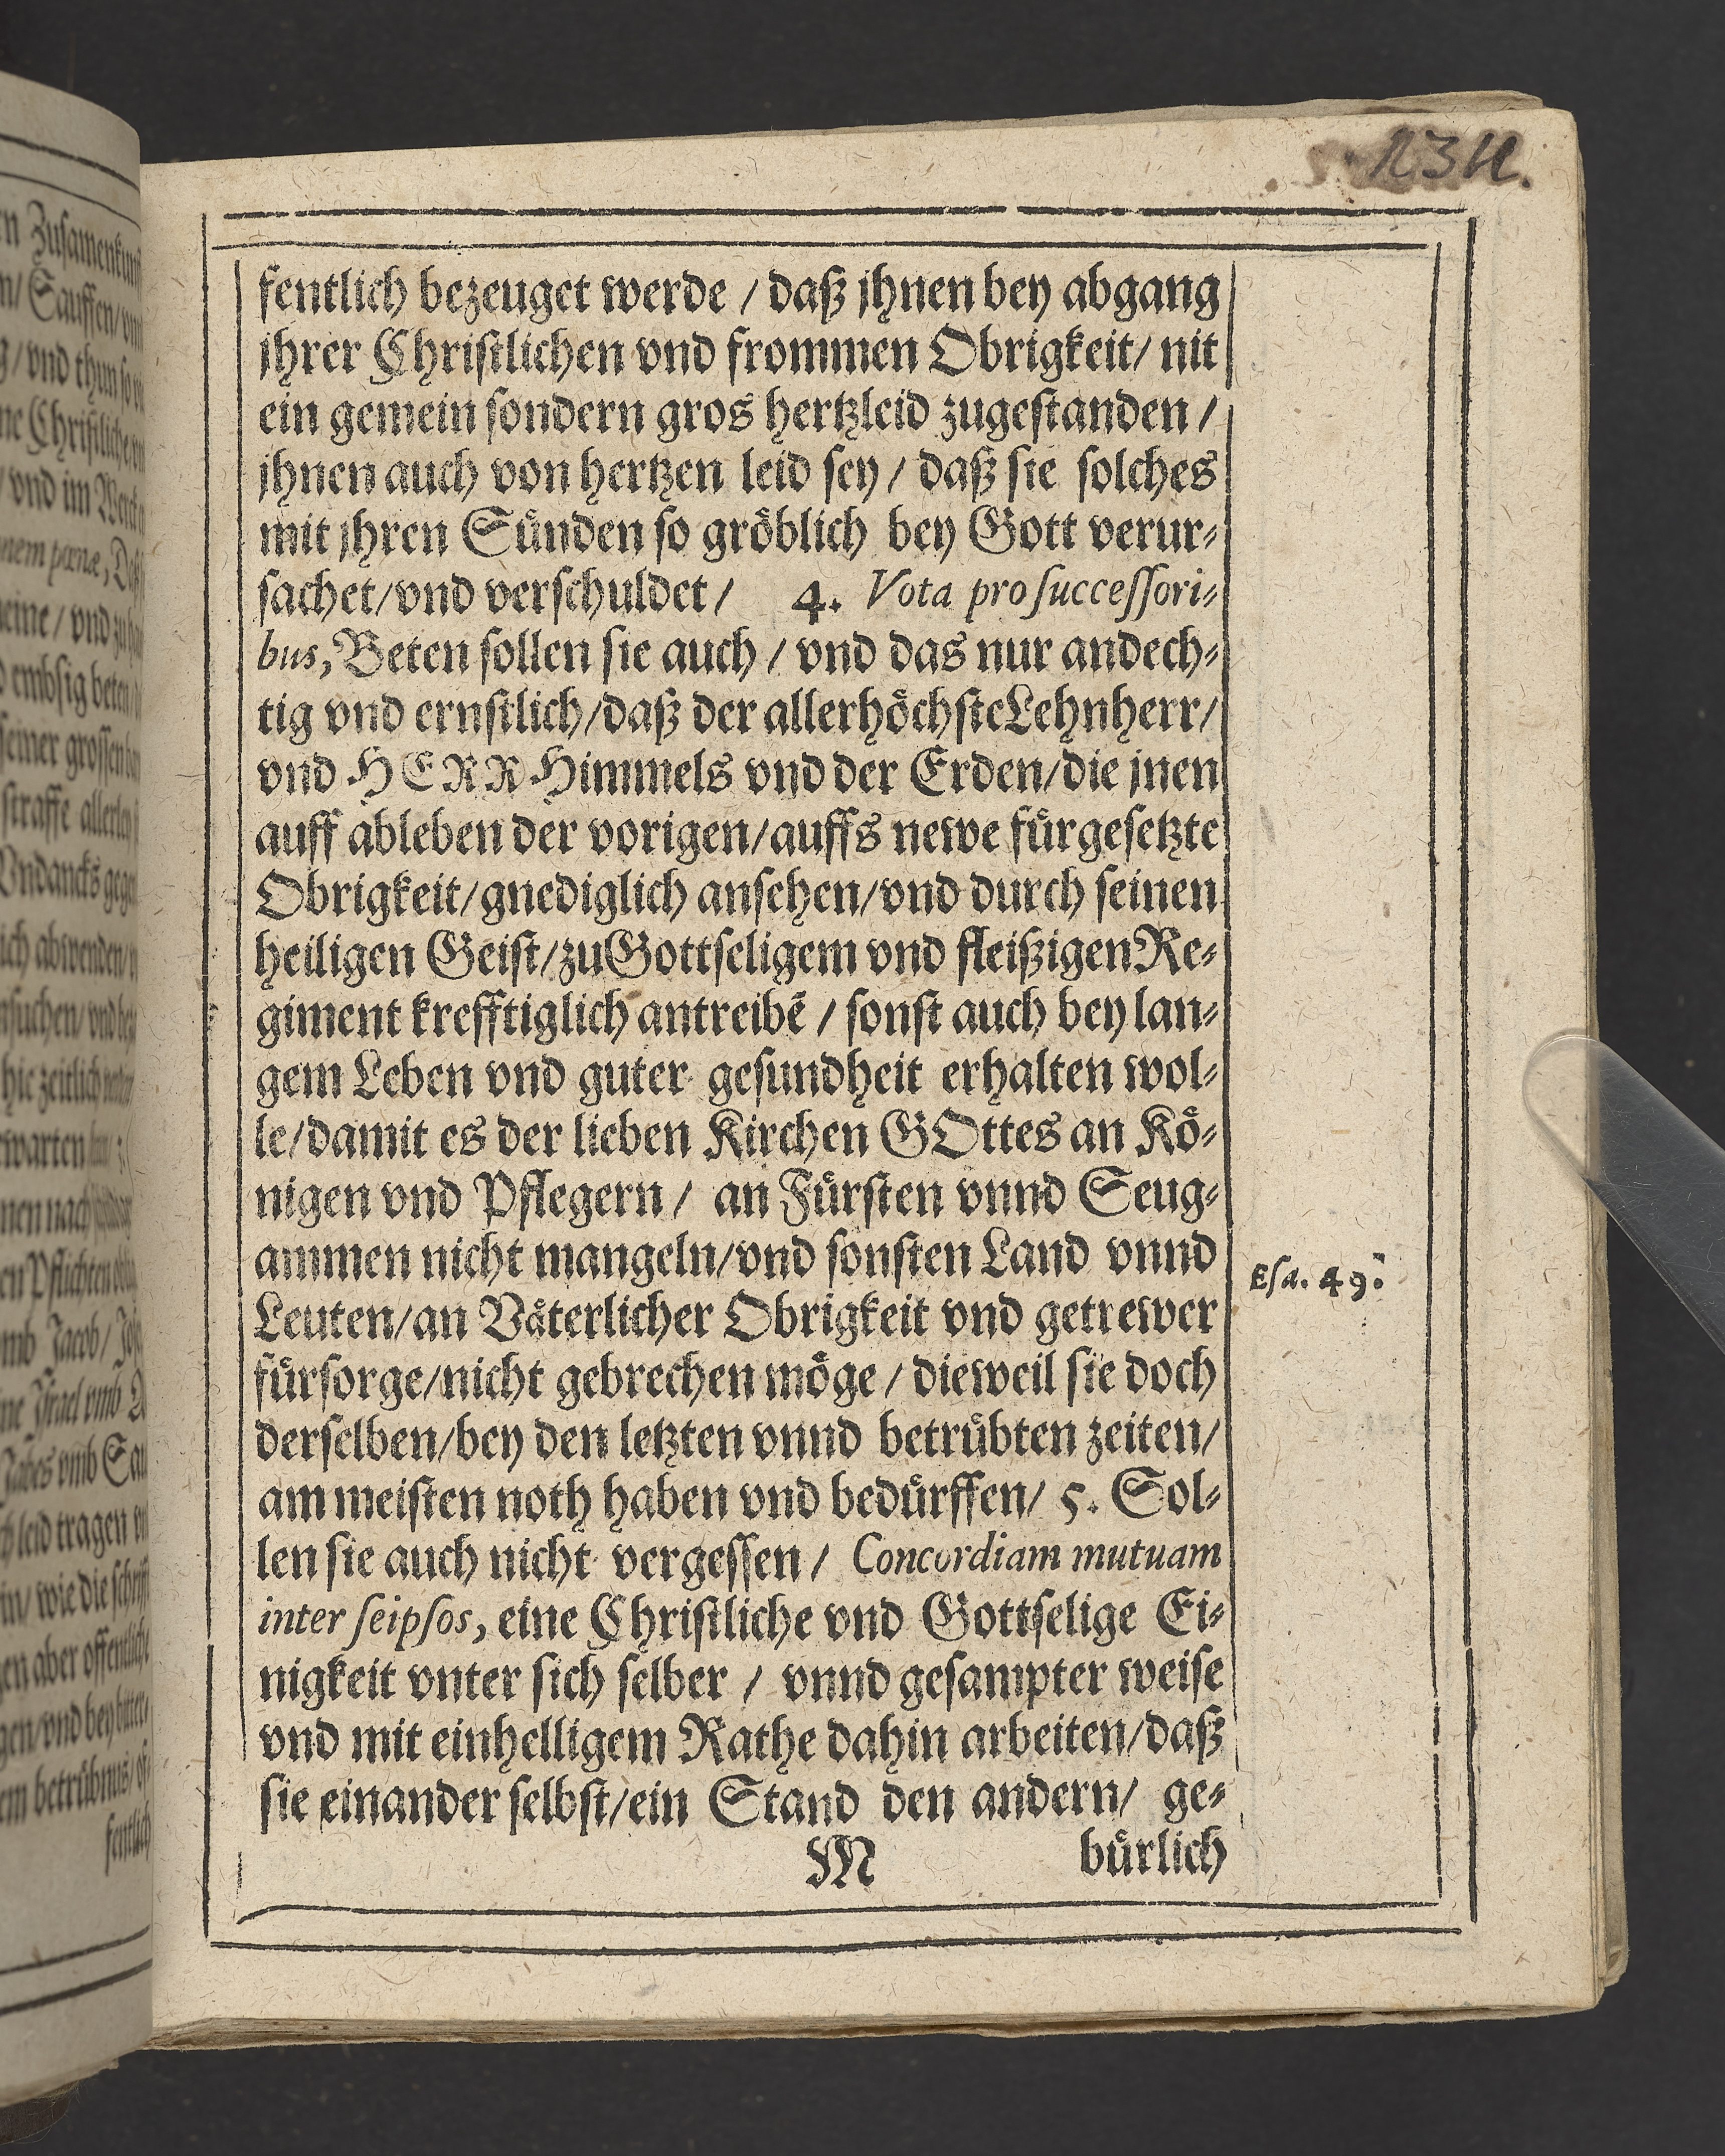 fentlich bezeuget werde / daß jhnen bey abgang
jhrer Christlichen vnd frommen Obrigkeit/ nit
ein gemein sondern gros hertzleid zugestanden /
jhnen auch von hertzen leid sey / daß sie solches
mit jhren Sünden so gröblich bey Gott verur-
sachet/vnd verschuldet / 4. Vota pro successori-
bus, Beten sollen sie auch / vnd das nur andech-
tig vnd ernstlich/daß der allerhöchste Lehnherr/
vnd HERR Himmels vnd der Erden/die jnen
auff ableben der vorigen/auffs newe fürgesetzte
Obrigkeit/gnediglich ansehen/vnd durch seinen
heiligen Geist/zu Gottseligem vnd fleißigen Re-
giment krefftiglich antreibē / sonst auch bey lan-
gem Leben vnd guter gesundheit erhalten wol-
le/damit es der lieben Kirchen GOttes an Kö-
nigen vnd Pflegern / an Fürsten vnnd Seug-
ammen nicht mangeln/vnd sonsten Land vnnd
Esa. 49.
Leuten/an Väterlicher Obrigkeit vnd getrewer
fürsorge/nicht gebrechen möge / dieweil sie doch
derselben/bey den letzten vnnd betrübten zeiten/
am meisten noth haben vnd bedürffen/ 5. Sol-
len sie auch nicht vergessen / Concordiam mutuam
inter seipsos, eine Christliche vnd Gottselige Ei-
nigkeit vnter sich selber / vnnd gesampter weise
vnd mit einhelligem Rathe dahin arbeiten/daß
sie einander selbst/ein Stand den andern/ ge-
M bürlich